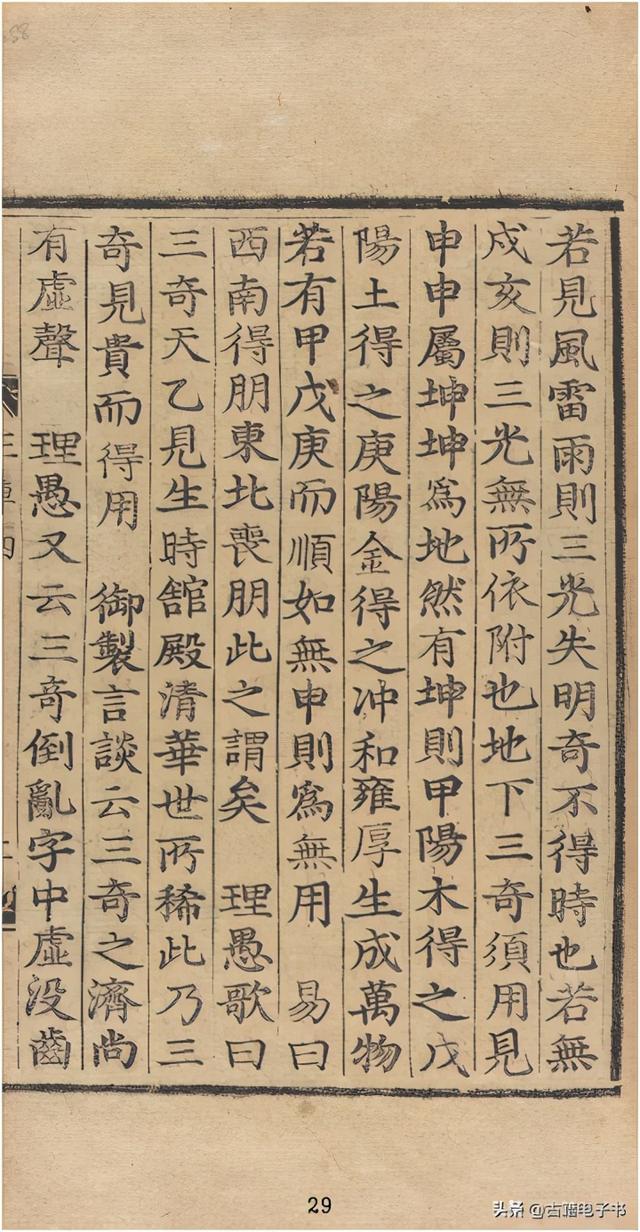 若見風雷雨則三光失明奇不得時也若無
戍亥則三光無所依附也地下三奇須用見
申申屬坤坤為地然有坤則甲陽木得之戊
陽土得之庚陽金得之冲和雍厚生成萬物
若有甲戊庚而順如無申則為無用 易曰
西南得朋東北喪朋此之謂矣 理愚歌曰
三奇天乙見生時舘殿清華世所稀此乃三
奇見貴而得用 御製言談云三奇之濟尚
有虛聲 理愚又云三奇倒亂字中虛没齒
29
头条 @古籍电子书